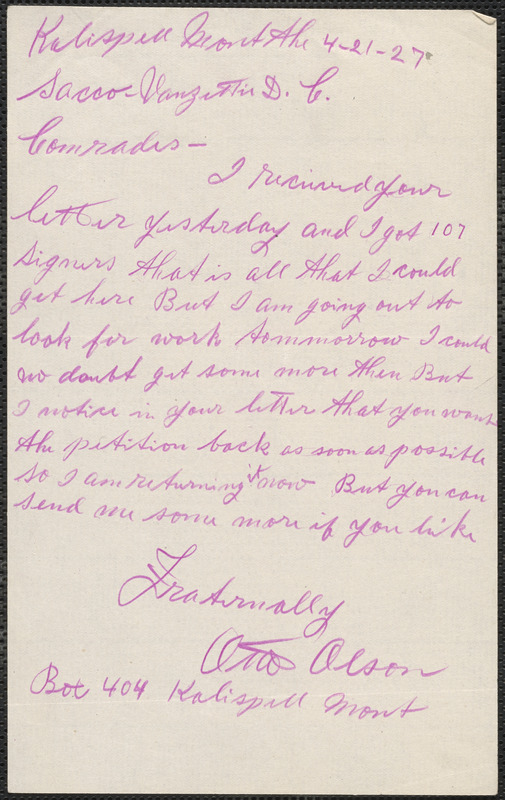 Kalispell Mont The 4-21-27
Sacco-Vanzettie D. C.
Comrades —
I received your
letter yesterday and I got 107
signers that is all that I could
get here But I am going out to
look for work tommorrow I could
no doubt get some more then But
I notice in your letter that you want
the petition back as soon as possible
so I am returning it now But you can
send me some more if you like
Fraternally
Otto Olson
Box 404 Kalispell Mont